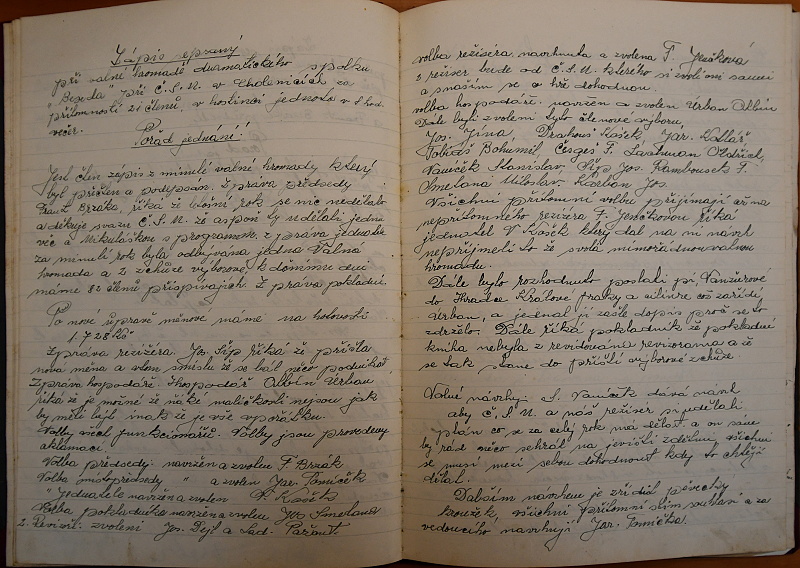 Zápis
při valné hromadě dramatického spolku
"Beseda" při Č.S.M. v Cholenicích za
přítomnosti 21 členů, v hostinci jednota v 8 hod.
večer.
Pořád jednání:
člen zápis z minulé valné hromady který
byl přečten a podepsán. Zpráva předsedy
Frant. Brzáka, říká že loňský rok se nic nedělalo
a děkuje svazu Č.S.M. že aspoň ty udělali jednu
věc a Mikulášskou s programem. Zpráva jednatele
za minulý rok byla odbývána jedna Valná
hromada a 2 schůze výborové, k dnešnímu dni
máme 82 členů přispívajících. Zpráva pokladní.
Po nové úpravě měnové máme na hotovosti
1.728 Kčs
Zpráva režiséra. Jos. Šíp říká že přišla
nová měna a v tom smyslu že se bál něco podnikat,
Zpráva hospodáře. Hospodář Albín Urban
říká že je možné že nějaké maličkosti nejsou jak
by měli být jinak že je vše v pořádku.
Volby všech funkcionářů. Volby jsou provedeny
aklamací
Volba předsedy: navržen a zvolen F. Brzák
Volba místopředsedy " a zvolen Jar. Tomíček
" Jednatele navržen a zvolen V. Košek
Volba pokladníka navržen a zvolen Jos. Smetana
2. Revizoři: zvoleni Jos. Dejl a Lad. Pařout
volba režiséra, navrhnuta a zvolena F. Jenčková
z režiser bude od Č.S.M. kterého si zvolí oni sami
a snášim se o hře dohodnou.
volba hospodáře. navržen a zvolen Urban Albín
Dále byli zvoleni tyto členové výboru,
Jos. Jína, Drahouš Košek, Jar. Kollář
Tobiáš Bohumil, F. Oldřich,
Vaníček Stanislav, Šíp Jos. Rambousek F.
Smetana Miloslav, Jos.
Všichni přítomní volbu přijímají až na
nepřítomného režizera F. Jenčkovou říká
jednatel V. Košek který dal na ní návrh
nepřijmeli to že svolá mimořádnou valnou
hromadu.
Dále bylo rozhodnuto poslati pí. Vanžurové
do Hradce Králové fraky a cilindr což zařídí
Urban, a jednatel jí zašle dopis proč se to
zdrželo. Dále říká pokladník že pokladní
kniha nebyla z revidována revizorama a že
se tak stane do příští výborové schůze.
Volné návrhy: S. Vaníček dává návrh
aby Č.S.M. a náš režiser si udělali
plán co se za celý rok má dělat a on sám
by rád něco sehrál na jevišti zdejším, všichni
se musí mezi sebou dohodnout kdy to chtějí
dělat.
Dalším návrhem je zřídit pěvecký
kroužek, všichni přítomní s tím souhlasí a za
vedoucího navrhují Jar. Tomíčka.